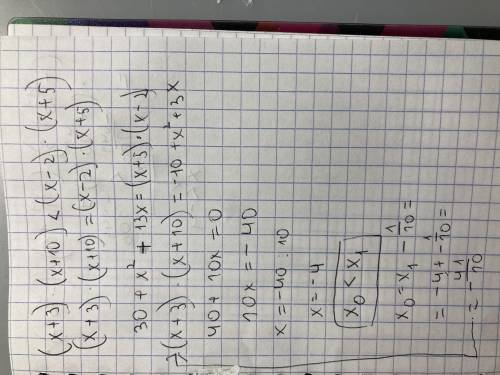 (x+3)·(x+10) < (x-2)·(x+5)
(x+3)·(x+10) = (x-2)·(x+5)
30 + x² + 13x = (x+5)·(x-2)
(x+3)·(x+10) = -10 + x² + 3x
40 + 10x = 0
10x = -40
x = -40 : 10
x = -4
x₀ < x₁
x₀ = x₁ - 1/10 =
= -4 + -1/10 =
= -41/10